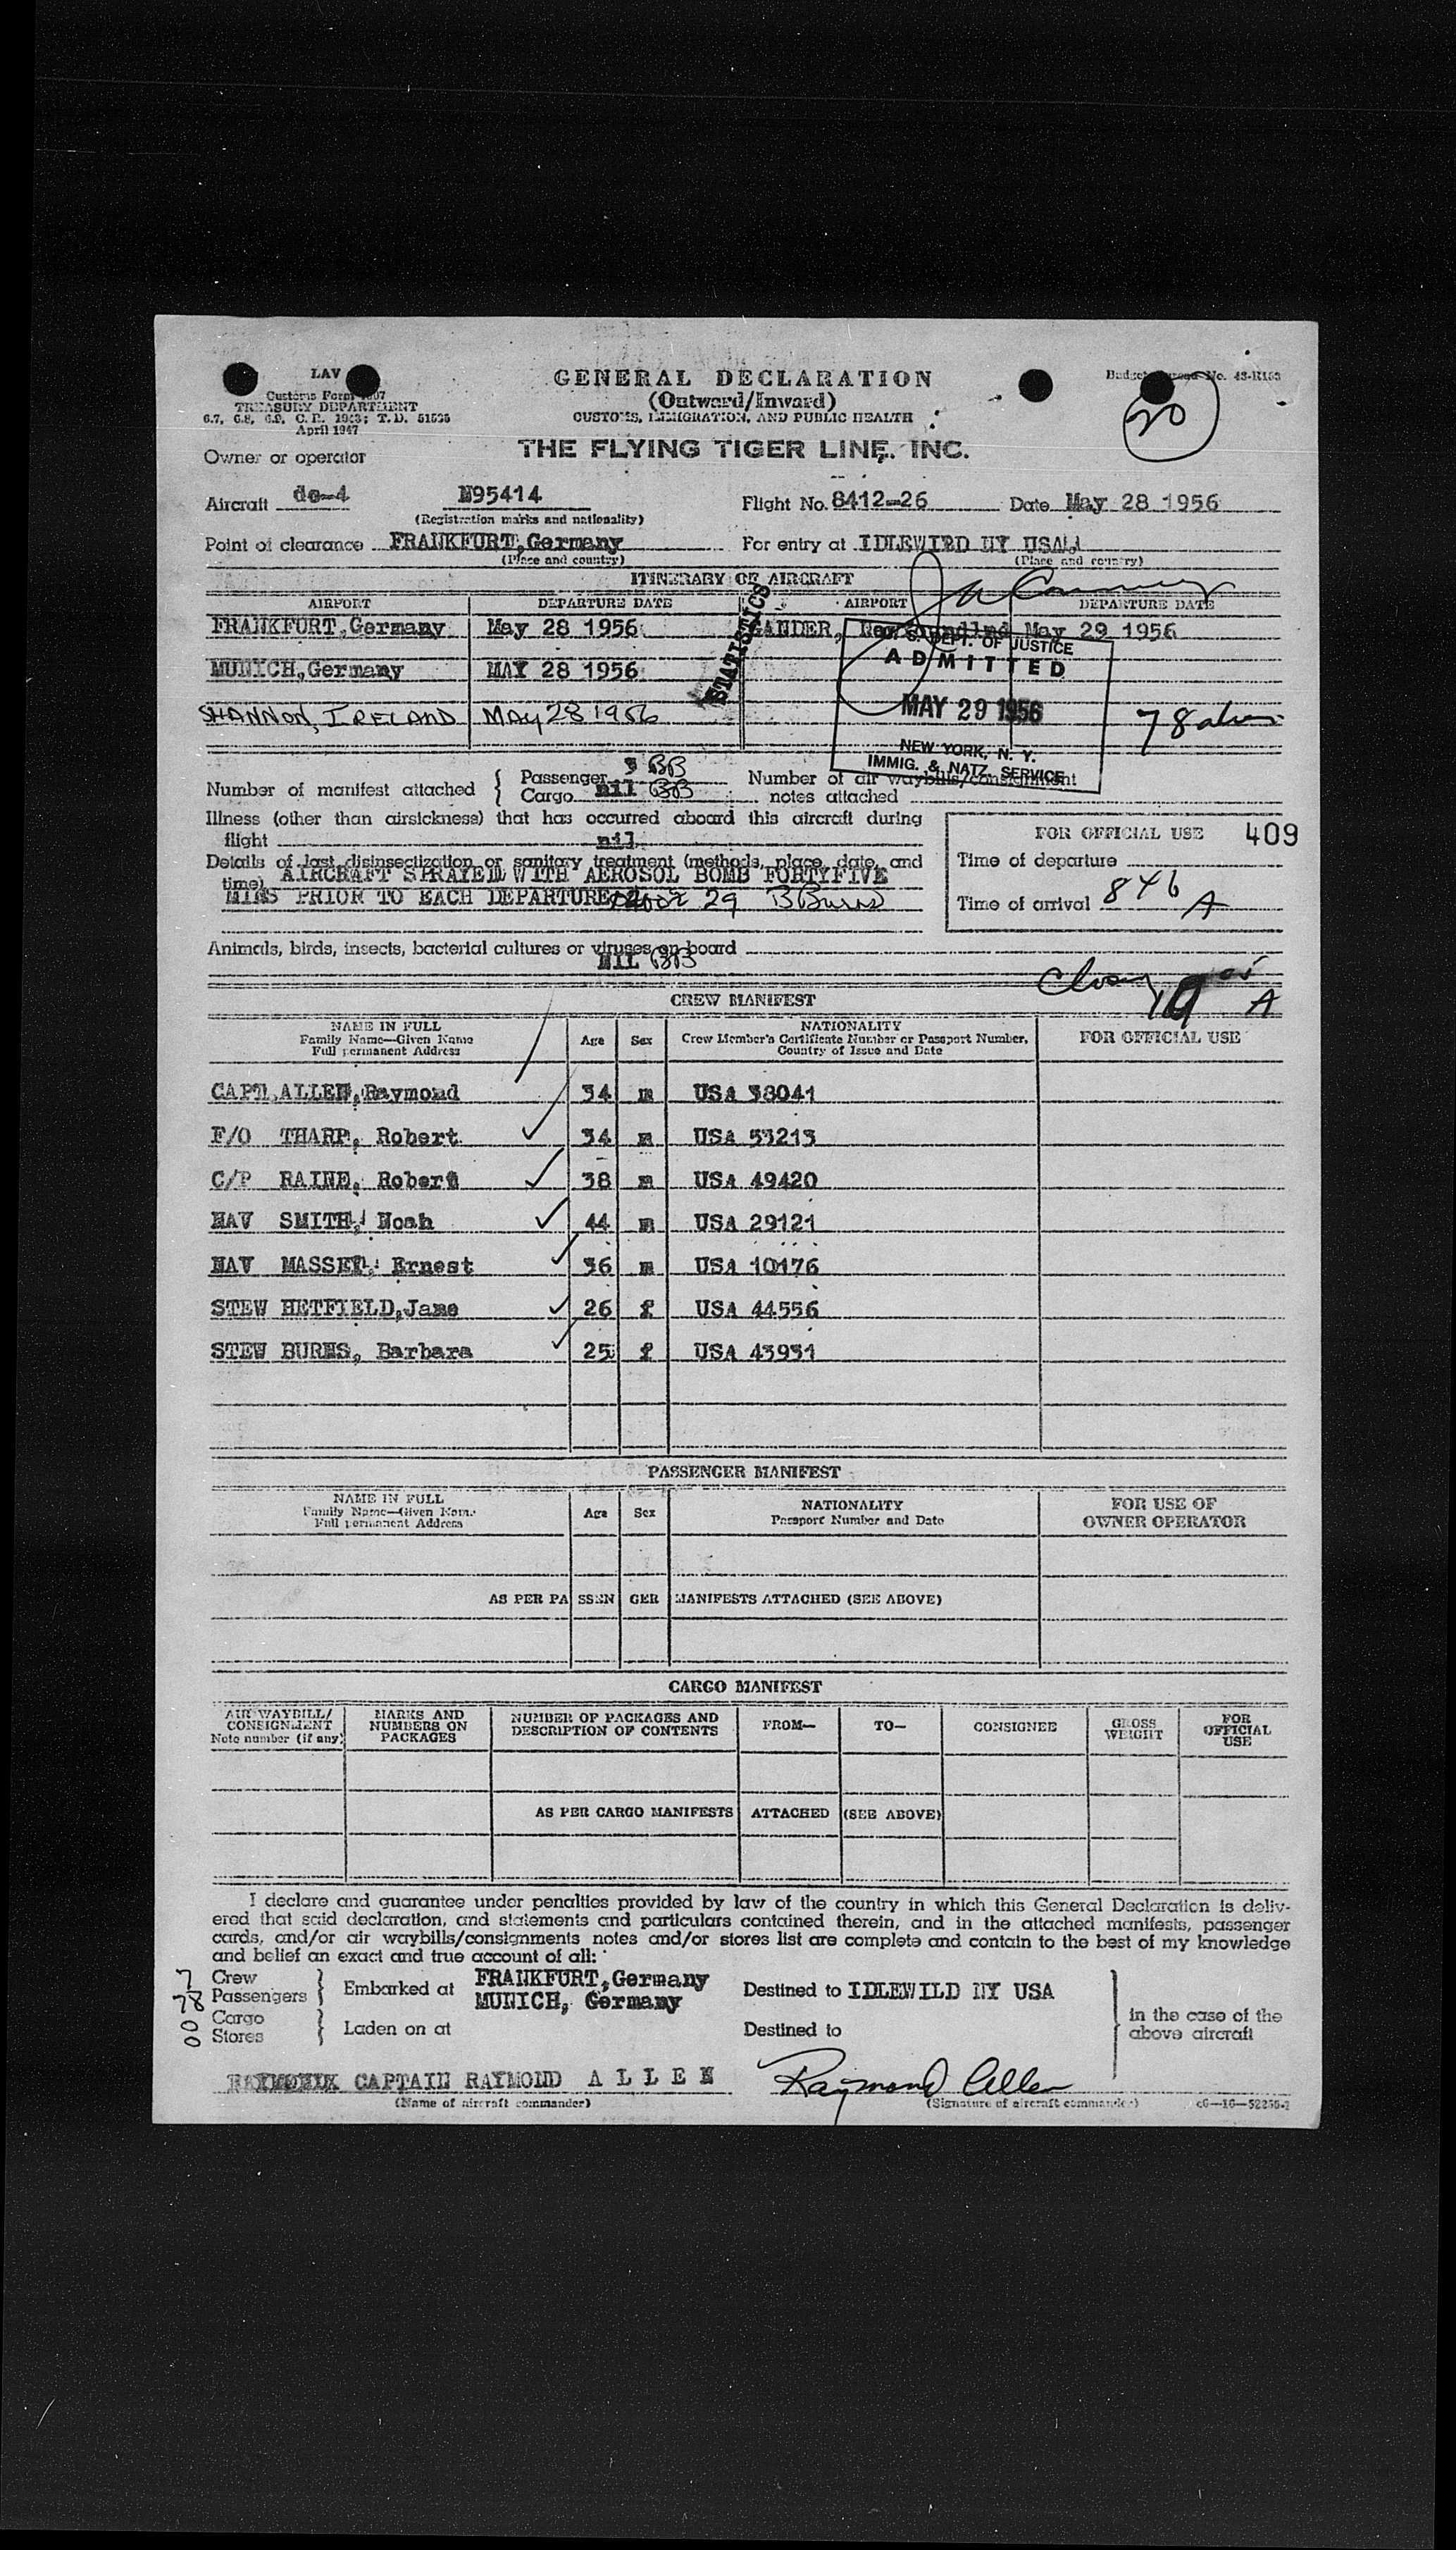 LAV
Customs Form
TREASURY DEPARTMENT
6.7, 6.8, 6.9, C. R. 1943; T.D. 51505
April 1947
GENERAL DECLARATION
(Outward/Inward)
CUSTOMS, IMMIGRATION, AND PUBLIC HEALTH
Budget No. 43-R103
20
THE FLYING TIGER LINE. INC.
Owner or operator
Aircraft dc-4 N95414 Flight No. 8412-26 Date May 28 1956
(Registration marks and nationality)
Point of clearance FRANKFURT,Germany For entry at IDLEWIRD NY USA
(Place and country) (Place and country)
ITINERARY OF AIRCRAFT
AIRPORT DEPARTURE DATE AIRPORT DEPARTURE DATE
FRANKFURT,Germany May 28 1956 GANDER, Newfoundlnd May 29 1956
MUNICH,Germany MAY 28 1956
SHANNON, IRELAND MAY 28 1956
STATISTICS
U. S. DEPT. OF JUSTICE
ADMITTED
MAY 29 1956
NEW YORK, N. Y.
IMMIG. & NATZ. SERVICE
78 aliens
Number of manifest attached { Passenger 3 BB Number of air waybills/consignment
Cargo nil BB notes attached
Illness (other than airsickness) that has occurred aboard this aircraft during
flight nil
FOR OFFICIAL USE 409
Details of last disinsectization or sanitary treatment (methods, place, date, and
time) AIRCRAFT SPRAYED WITH AEROSOL BOMB FORTYFIVE
MINS PRIOR TO EACH DEPARTURE 29 B Burns
Time of departure
Time of arrival 846 A
Animals, birds, insects, bacterial cultures or viruses on board
NIL BB
A
CREW MANIFEST
NAME IN FULL
Family Name—Given Name
Full permanent Address
Age Sex
NATIONALITY
Crew Member's Certificate Number or Passport Number,
Country of Issue and Date
FOR OFFICIAL USE
CAPT,ALLEN,Raymond 34 m USA 38041
F/O THARP, Robert 34 m USA 53213
C/P RAINE, Robert 38 m USA 49420
NAV SMITH, Noah 44 m USA 29121
NAV MASSEY, Ernest 36 m USA 10176
STEW HETFIELD,Jane 26 f USA 44556
STEW BURNS, Barbara 25 f USA 43931
PASSENGER MANIFEST
NAME IN FULL
Family Name—Given Name
Full permanent Address
Age Sex
NATIONALITY
Passport Number and Date
FOR USE OF
OWNER OPERATOR
AS PER PASSENGER MANIFESTS ATTACHED (SEE ABOVE)
CARGO MANIFEST
AIR WAYBILL/
CONSIGNMENT
Note number (if any)
MARKS AND
NUMBERS ON
PACKAGES
NUMBER OF PACKAGES AND
DESCRIPTION OF CONTENTS
FROM— TO— CONSIGNEE
GROSS
WEIGHT
FOR
OFFICIAL
USE
AS PER CARGO MANIFESTS ATTACHED (SEE ABOVE)
I declare and guarantee under penalties provided by law of the country in which this General Declaration is deliv-
ered that said declaration, and statements and particulars contained therein, and in the attached manifests, passenger
cards, and/or air waybills/consignments notes and/or stores list are complete and contain to the best of my knowledge
and belief an exact and true account of all:
7 Crew
78 Passengers } Embarked at FRANKFURT,Germany
MUNICH, Germany
Destined to IDLEWILD NY USA
0 Cargo
0 Stores } Laden on at Destined to
in the case of the
above aircraft
CAPTAIN RAYMOND A L L E N Raymond Allen
(Name of aircraft commander) (Signature of aircraft commander)